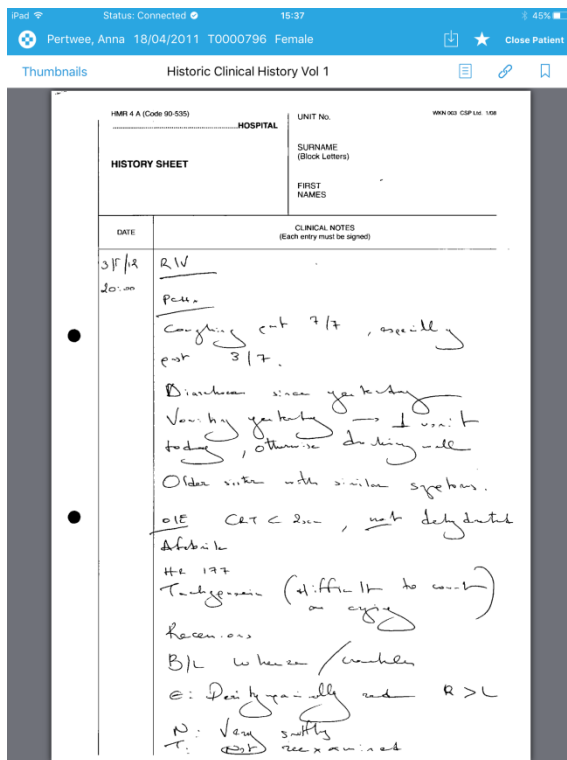 iPad Status: Connected 15:37 45%
Pertwee, Anna 18/04/2011 T0000796 Female Close Patient
Thumbnails Historic Clinical History Vol 1
HMR 4 A (Code 90-535)
HOSPITAL
UNIT No.
WKN 003 CSP Ltd. 1/08
HISTORY SHEET
SURNAME
(Block Letters)
FIRST
NAMES
DATE
CLINICAL NOTES
(Each entry must be signed)
20:00
Coughing past 7/7, especially
past 3/7.
Diarrhoea since yesterday
Vomiting yesterday → 1 vomit
today, otherwise drinking well
Older sister with similar symptoms.
O/E CRT < 2sec, not dehydrated
Afebrile
HR 177
Tachypnoeic (difficult to count
as crying)
Recessions
B/L wheeze / crackles
E: red R > L
N: Very snuffly
T: not reexamined